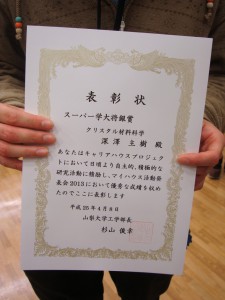 表彰状
スーパー学大将銀賞
クリスタル材料科学
深澤 主樹 殿
あなたはキャリアハウスプロジェク
トにおいて日頃より自主的、積極的な
研究活動に精励し、マイハウス活動発
表会2013において優秀な成績を収め
たのでここに表彰します
平成25年4月8日
山梨大学工学部長
杉山 俊幸